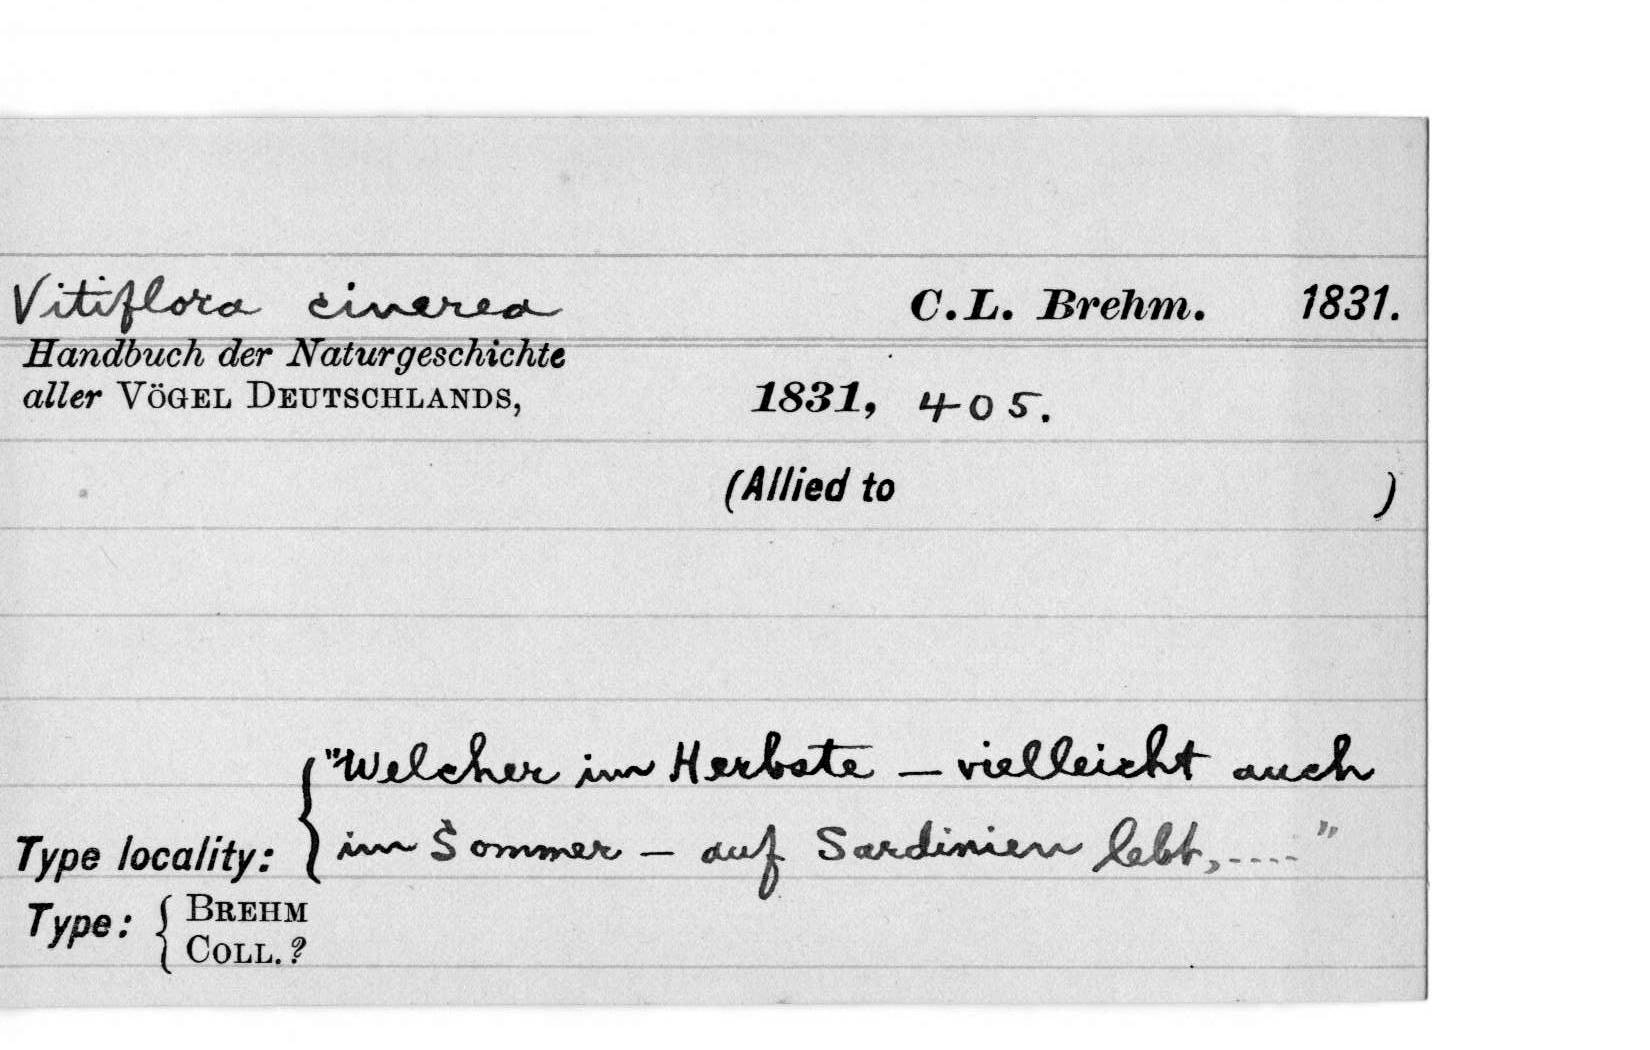 Vitiflora cinerea C.L. Brehm. 1831.
Handbuch der Naturgeschichte
aller VÖGEL DEUTSCHLANDS, 1831, 405.
(Allied to )
"Welcher im Herbste – vielleicht auch
Type locality: { im Sommer – auf Sardinien lebt, ....."
Type: { BREHM
COLL. ?